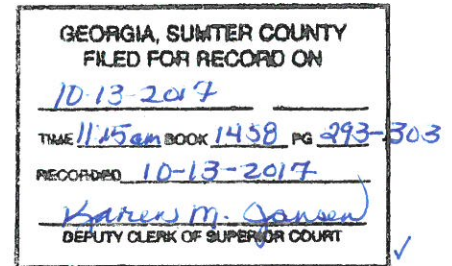 GEORGIA, SUMTER COUNTY
FILED FOR RECORD ON
10-13-2017
TIME 11:15am BOOK 1458 PG 293-303
RECORDED 10-13-2017
Karen M. Jansen
DEPUTY CLERK OF SUPERIOR COURT